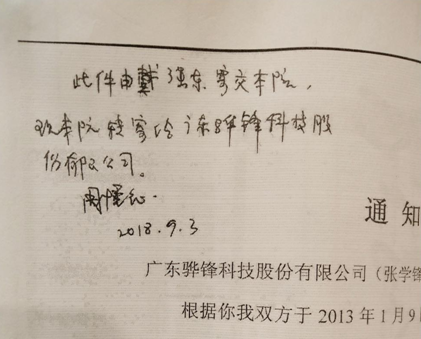 此件由戴强东寄交本院，
现本院转寄给广东骅锋科技股
份有限公司。
2018.9.3
通知
广东骅锋科技股份有限公司（张学锋
根据你我双方于2013年1月9